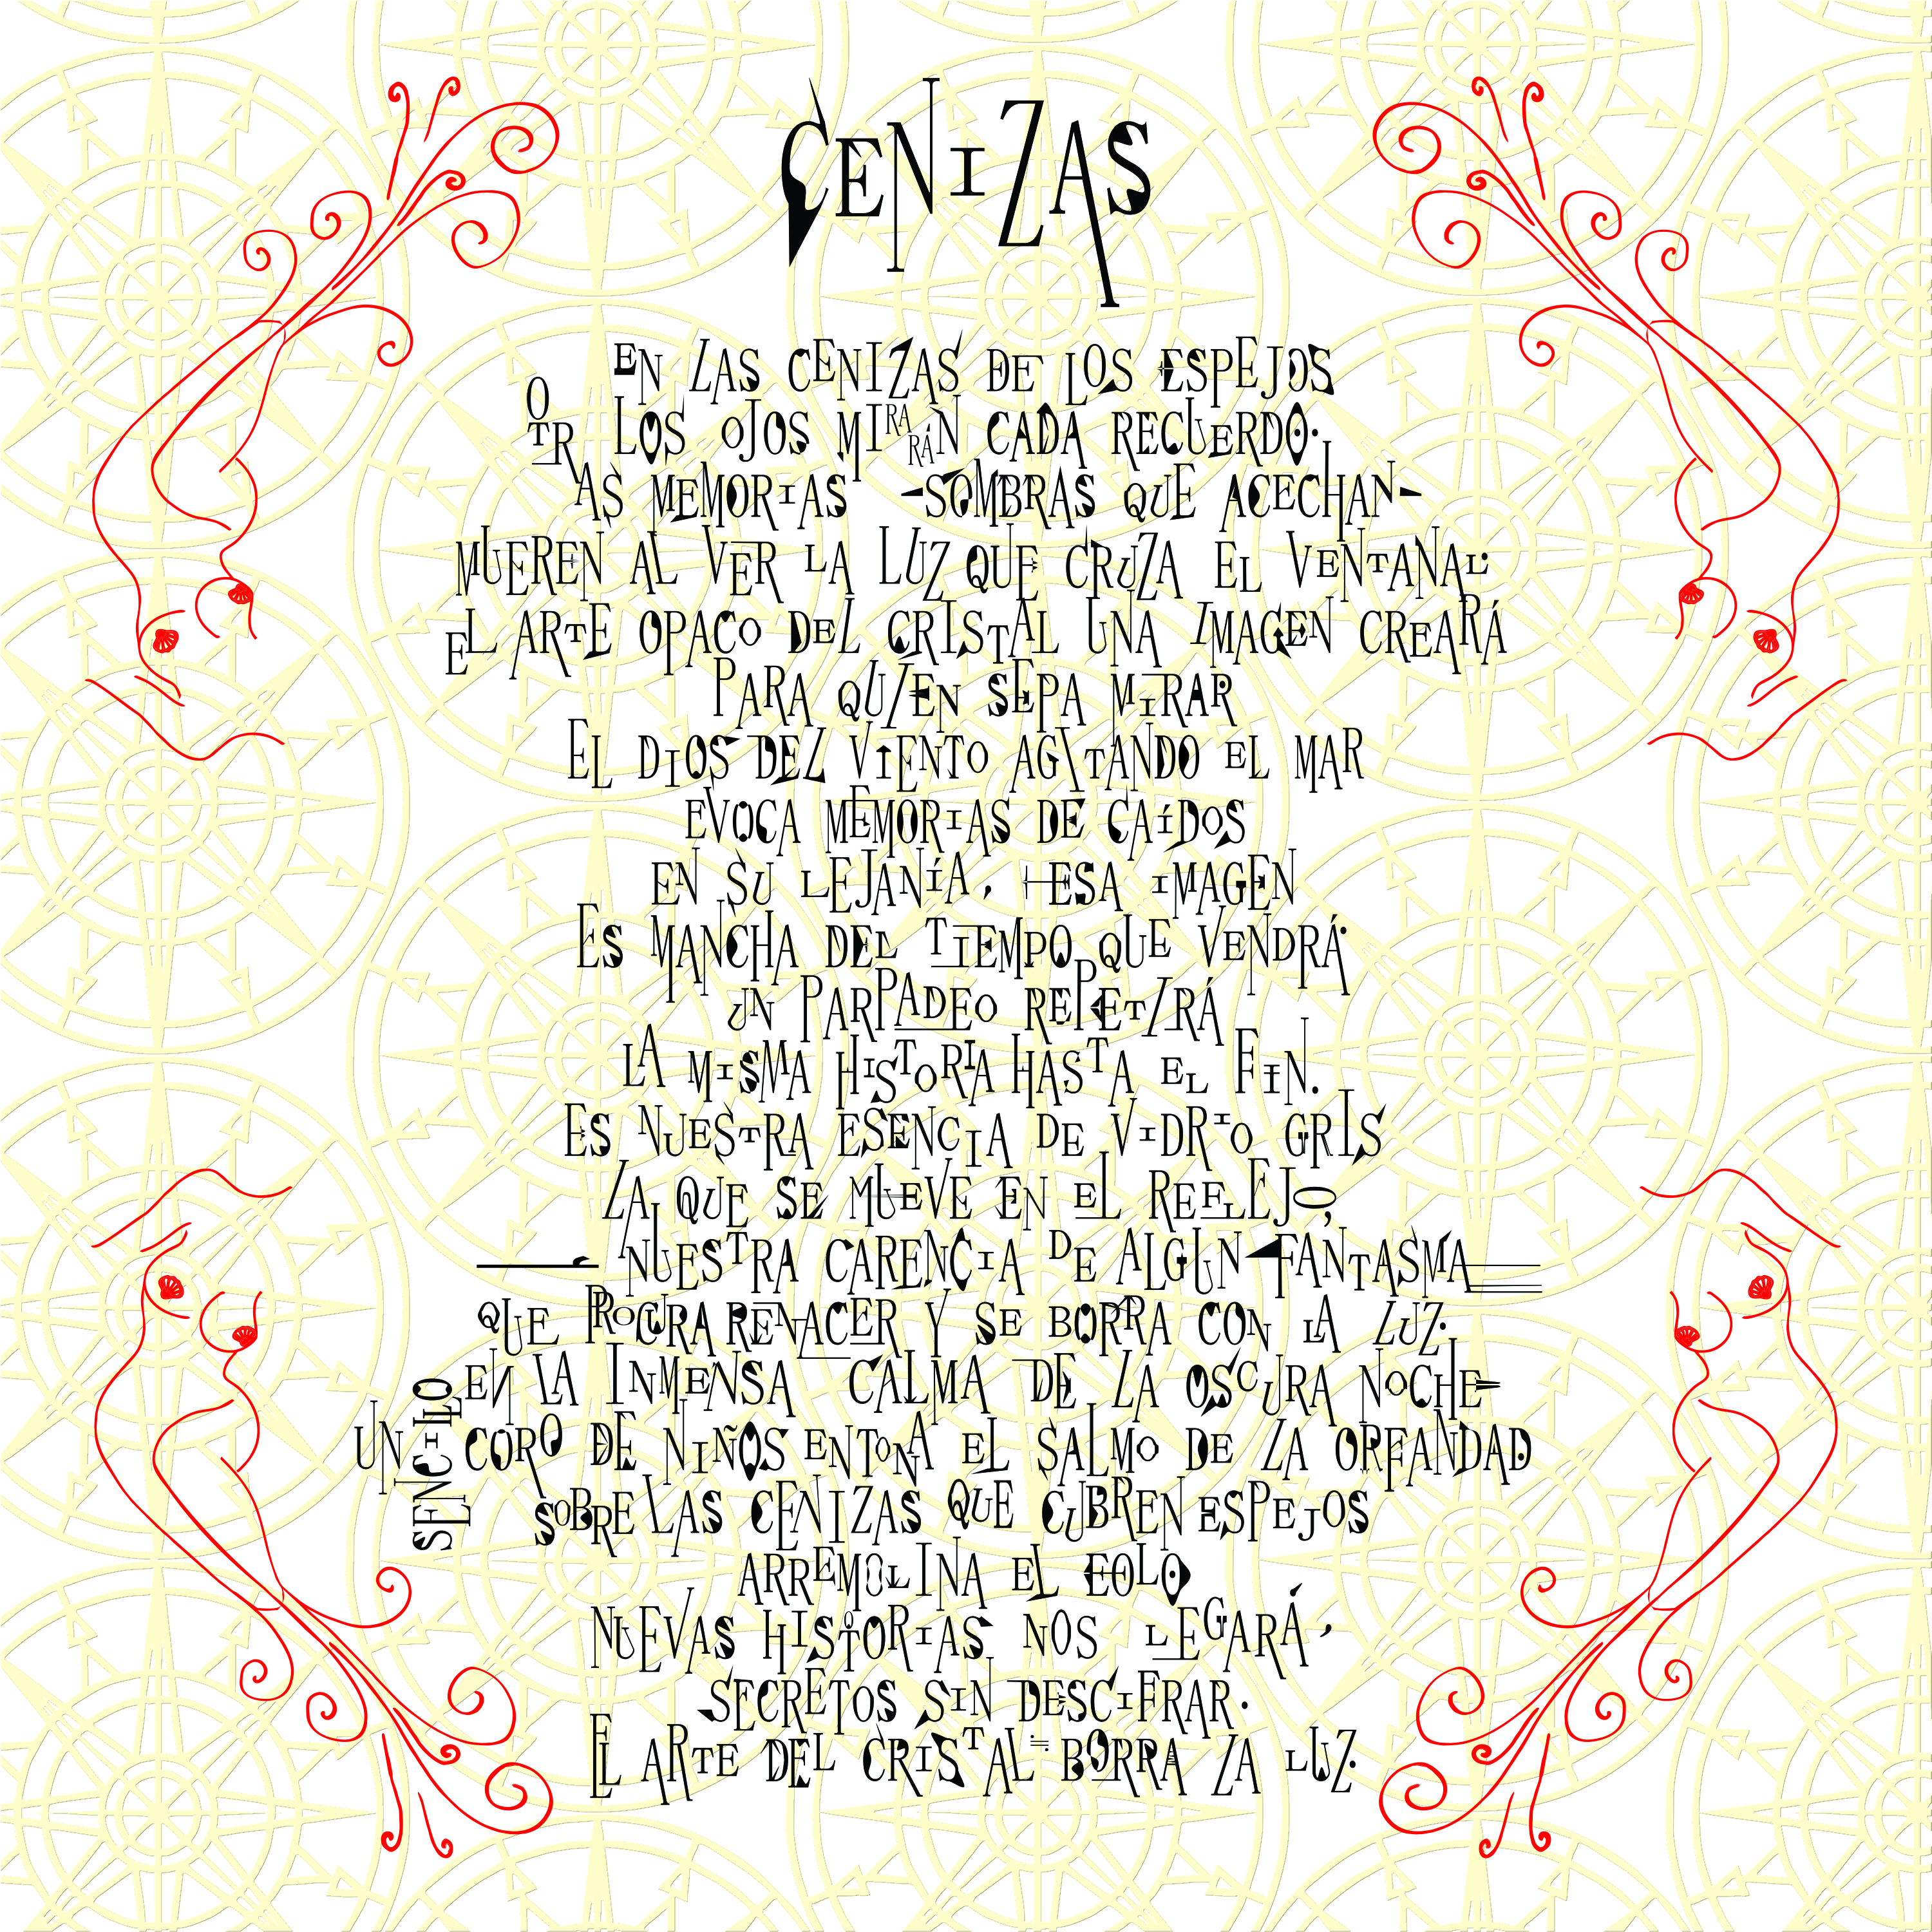 CENIZAS
EN LAS CENIZAS DE LOS ESPEJOS
LOS OJOS MIRARÁN CADA RECUERDO.
OTRAS MEMORIAS -SOMBRAS QUE ACECHAN-
MUEREN AL VER LA LUZ QUE CRUZA EL VENTANAL.
EL ARTE OPACO DEL CRISTAL UNA IMAGEN CREARÁ
PARA QUIEN SEPA MIRAR
EL DIOS DEL VIENTO AGITANDO EL MAR
EVOCA MEMORIAS DE CAÍDOS
EN SU LEJANÍA, ESA IMAGEN
ES MANCHA DEL TIEMPO QUE VENDRÁ.
UN PARPADEO REPETIRÁ
LA MISMA HISTORIA HASTA EL FIN.
ES NUESTRA ESENCIA DE VIDRIO GRIS
LA QUE SE MUEVE EN EL REFLEJO,
NUESTRA CARENCIA DE ALGUN FANTASMA
QUE PROCURA RENACER Y SE BORRA CON LA LUZ.
EN LA INMENSA CALMA DE LA OSCURA NOCHE
UN SENCILLO CORO DE NIÑOS ENTONA EL SALMO DE LA ORFANDAD
SOBRE LAS CENIZAS QUE CUBREN ESPEJOS
ARREMOLINA EL EOLO
NUEVAS HISTORIAS NOS LEGARÁ,
SECRETOS SIN DESCIFRAR.
EL ARTE DEL CRISTAL BORRA LA LUZ.